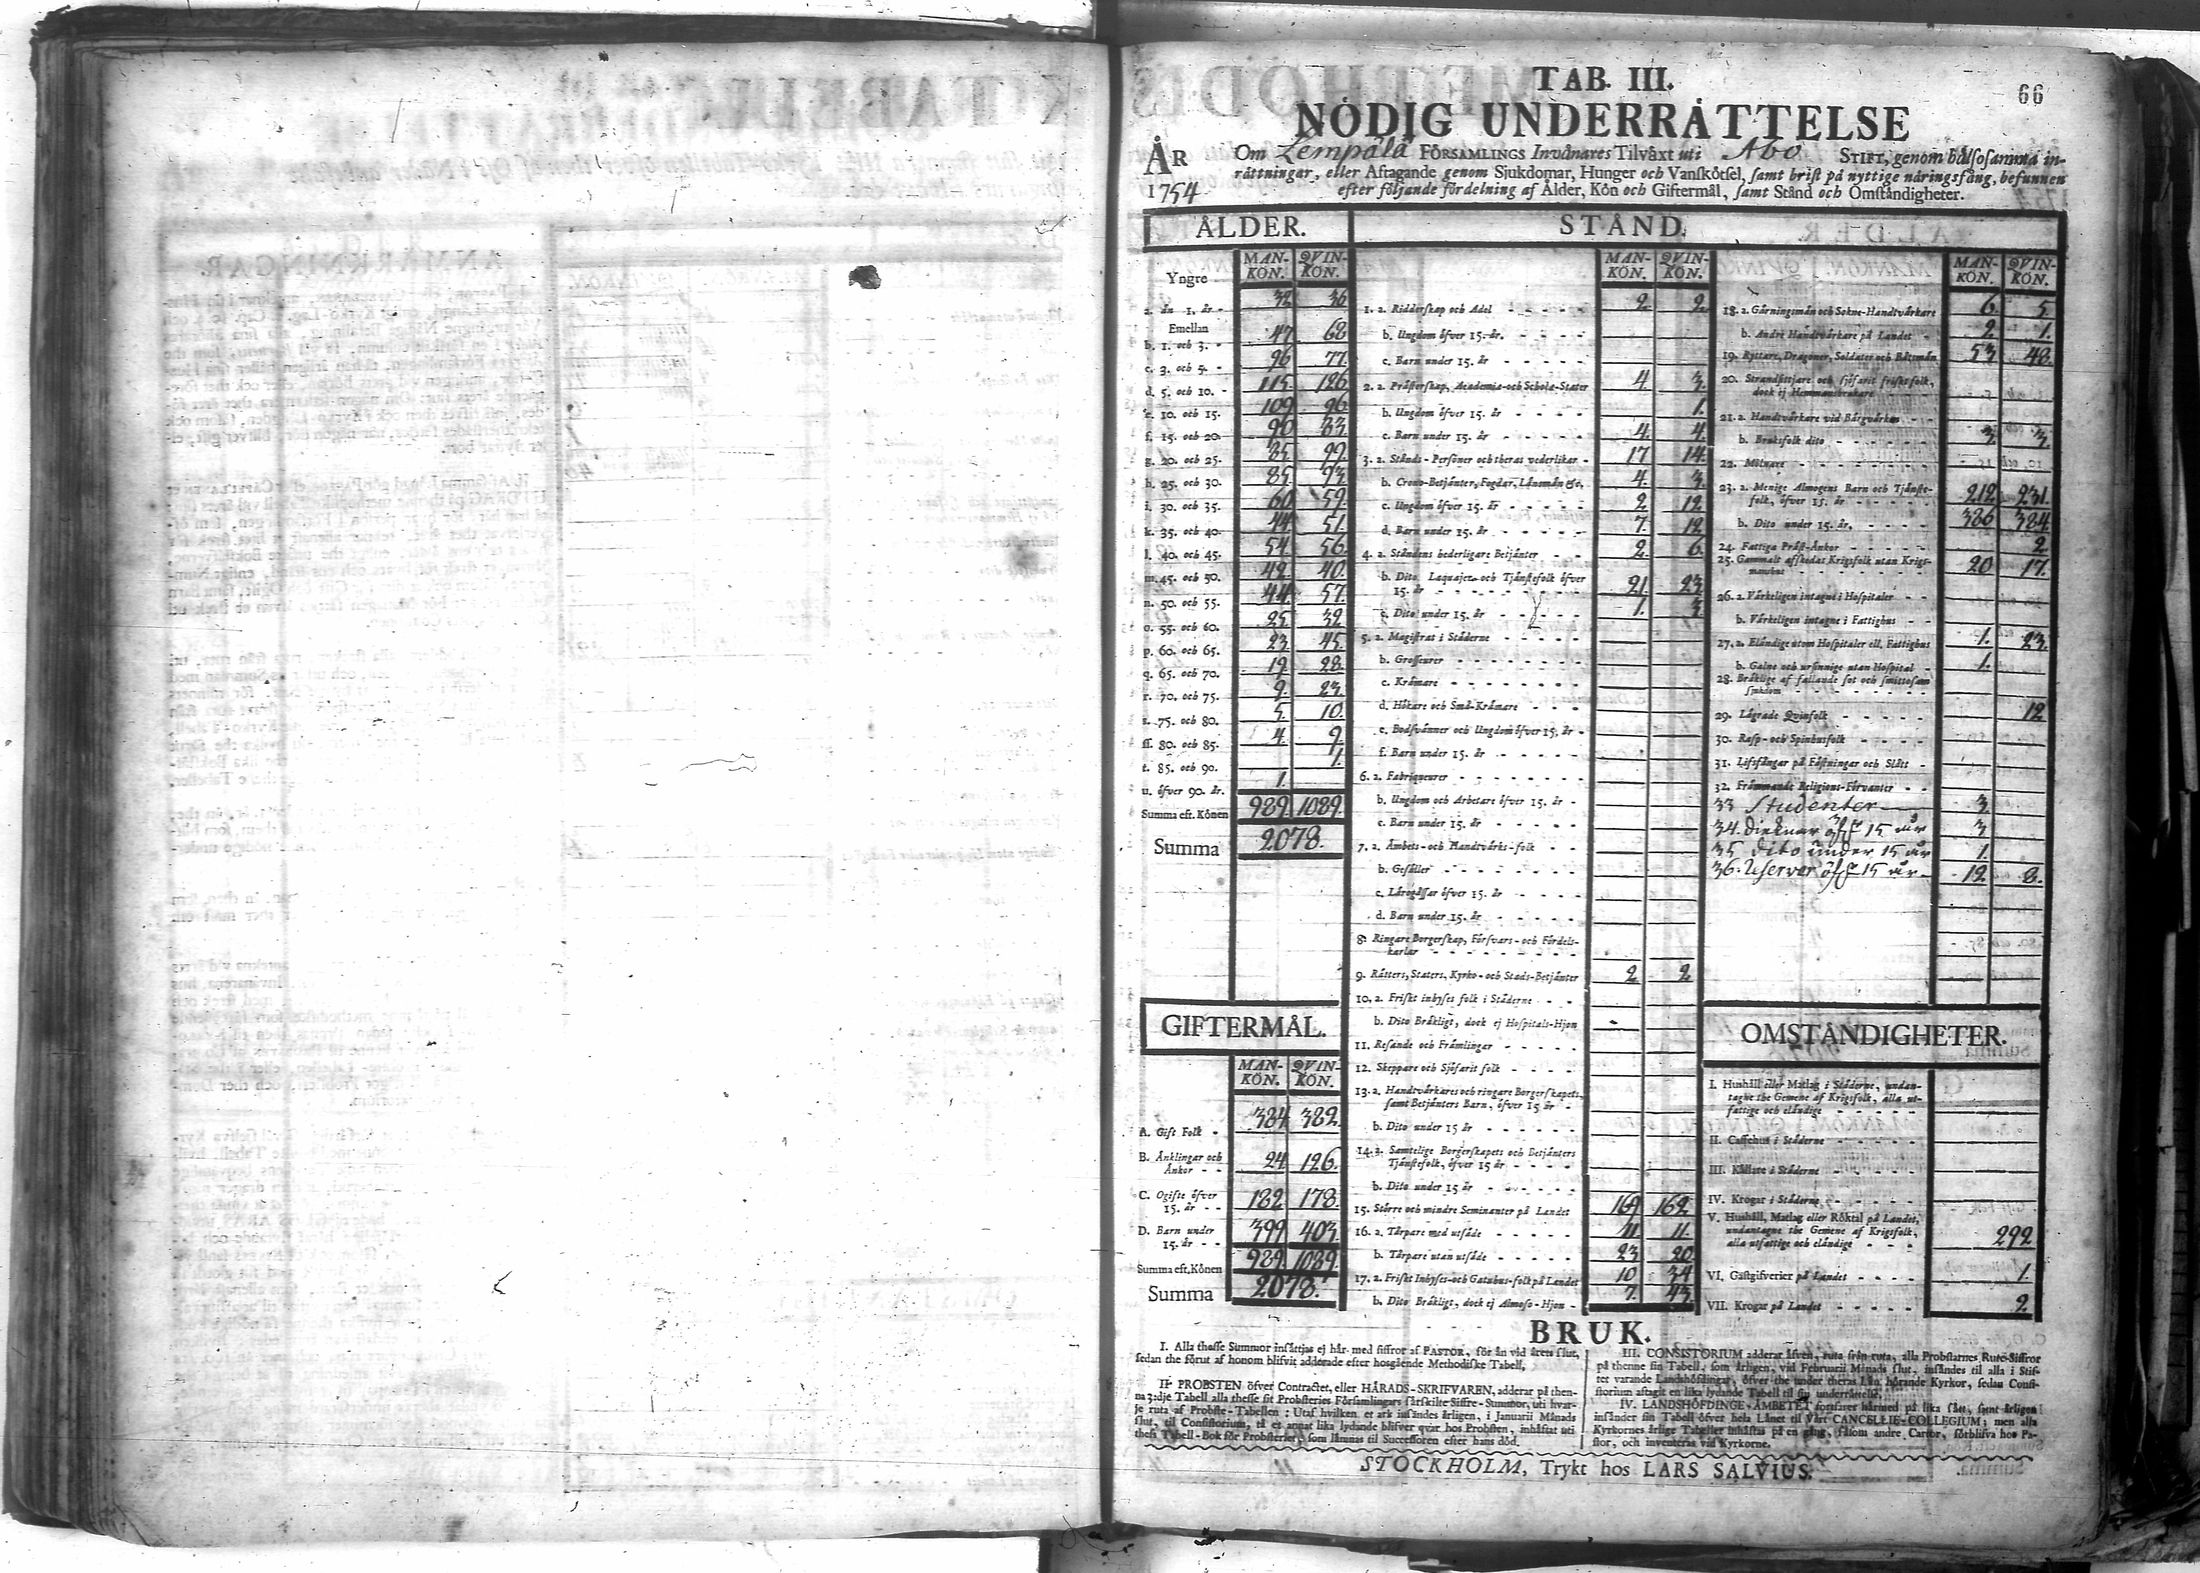 66
TAB. III.
NÖDIG UNDERRÄTTELSE
ÅR 1754
Om Lempälä FÖRSAMLINGS Invånares Tilväxt uti Åbo STIFT, genom hälsosamma in-
rättningar, eller Aftagande genom Sjukdomar, Hunger och Vanskötsel, samt brist på nyttige näringsfång, befunnen
efter följande fördelning af Ålder, Kön och Giftermål, samt Stånd och Omständigheter.
ÅLDER.
MAN-KÖN. QVIN-KÖN.
Yngre
a. än 1. år - 32 36
Emellan
b. 1. och 3. - 47 68
c. 3. och 5. - 96 77.
d. 5. och 10. - 115. 126
e. 10. och 15. 109 96
f. 15. och 20. 90 83.
g. 20. och 25. 85 99.
h. 25. och 30. 85. 93.
i. 30. och 35. 60 59.
k. 35. och 40. 44 51.
l. 40. och 45. 54 56.
m. 45. och 50. 42. 40.
n. 50. och 55. 44 57.
o. 55. och 60. 25. 32
p. 60. och 65. 23. 45.
q. 65. och 70. 19. 28.
r. 70. och 75. 9. 23.
s. 75. och 80. 5. 10.
ſſ. 80. och 85. 4. 9.
t. 85. och 90. 1.
u. öfver 90. år. 1.
Summa eft. Könen 989 1089.
Summa 2078.
GIFTERMÅL.
MAN-KÖN. QVIN-KÖN.
A. Gift Folk - 384 382.
B. Änklingar och
Änkor - - 24 126.
C. Ogifte öfver
15. år - - 182 178.
D. Barn under
15. år - - 399 403.
Summa eft. Könen 989 1089.
Summa 2078.
STÅND.
MAN-KÖN. QVIN-KÖN.
1. a. Ridderskap och Adel 2 2
b. Ungdom öfver 15. år.
c. Barn under 15. år
2. a. Prästerskap, Academiæ-och Scholæ-Stater 4. 3.
b. Ungdom öfver 15. år 1.
c. Barn under 15. år 4. 4.
3. a. Stånds-Personer och theras vederlikar 17 14.
b. Crono-Betjänter, Fogdar, Länsmän &c. 4. 3.
c. Ungdom öfver 15. år 2 12
d. Barn under 15. år 7. 12
4. a. Ståndens hederligare Betjänter 2 6.
b. Dito, Laquajer och Tjänstefolk öfver
15. år 21. 23
c. Dito under 15. år 1. 3.
5. a. Magistrat i Städerne
b. Grosseurer
c. Krämare
d. Hökare och Små-Krämare
e. Bodsvänner och Ungdom öfver 15. år
f. Barn under 15. år
6. a. Fabriqueurer
b. Ungdom och Arbetare öfver 15. år
c. Barn under 15. år
7. a. Ämbets-och Handtvärks-folk
b. Gesäller
c. Lärogåssar öfver 15. år
d. Barn under 15. år
8. Ringare Borgerskap, Försvars-och Fördels-
karlar
9. Rätters, Staters, Kyrko-och Stads-Betjänter 2 2
10. a. Friskt inhyses folk i Städerne
b. Dito Bräkligt, dock ej Hospitals-Hjon
11. Resande och Främlingar
12. Skeppare och Sjöfarit folk
13. a. Handtvärkares och ringare Borgerskapets,
samt Betjänters Barn, öfver 15 år
b. Dito under 15 år
14. a. Samtelige Borgerskapets och Betjänters
Tjänstefolk, öfver 15 år
b. Dito under 15 år
15. Större och mindre Seminanter på Landet 169 162
16. a. Tårpare med utsäde 11. 11.
b. Tårpare utan utsäde 23 20
17. a. Friskt Inhyses-och Gatuhus-folk på Landet 10 34
b. Dito Bräkligt, dock ej Almoso-Hjon 7. 43.
MAN-KÖN. QVIN-KÖN.
18. a. Gärningsmän och Sokne-Handtvärkare 6. 5.
b. Andre Handtvärkare på Landet 2. 1.
19. Ryttare, Dragoner, Soldater och Båtsmän 53 48.
20. Strandsittjare och sjöfarit friskt folk,
dock ej Hemmansbrukare
21. a. Handtvärkare vid Bärgvärken
b. Bruksfolk dito 3. 3.
22. Mölnare
23. a. Menige Almogens Barn och Tjänste-
folk, öfver 15. år 212 231.
b. Dito under 15. år. 386 384
24. Fattiga Präst-Änkor 2.
25. Gammalt afskedat Krigsfolk utan Krigs-
manshus 20 17.
26. a. Värkeligen intagne i Hospitaler
b. Värkeligen intagne i Fattighus
27. a. Eländige utom Hospitaler ell. Fattighus 1. 23.
b. Galne och ursinnige utan Hospital 1.
28. Bräklige af fallande sot och smittosam
sjukdom
29. Lägrade Qvinfolk 12
30. Rasp-och Spinhusfolk
31. Lifsfångar på Fästningar och Slått
32. Främmande Religions-Förvanter
33 Studenter 3.
34. Dieknar öff 15 år 3
35 dito under 15 år 1.
36. Reservar öff 15 år 12 8.
OMSTÄNDIGHETER.
I. Hushåll eller Matlag i Städerne, undan-
tagne the Gemene af Krigsfolk, alla ut-
fattige och eländige
II. Caffehus i Städerne
III. Källare i Städerne
IV. Krogar i Städerne
V. Hushåll, Matlag eller Röktal på Landet,
undantagne the Gemene af Krigsfolk,
alla utfattige och eländige 292
VI. Gästgifverier på Landet 1.
VII. Krogar på Landet 2.
BRUK.
I. Alla thesse Summor insättjas ej här med siffror af PASTOR, för än vid årets slut,
sedan the förut af honom blifvit adderade efter hosgående Methodiske Tabell.
II. PROBSTEN öfver Contractet, eller HÄRADS-SKRIFVAREN, adderar på then-
na 3:dje Tabell alla thesse sit Probsteries Församlingars särskilte Siffre-Summor, uti hvar-
je ruta af Probste-Tabellen: Utaf hvilken et ark insändes årligen, i Januarii Månads
slut, til Consistorium, tå et annat lika lydande blifver qvar hos Probsten, inhäftat uti
thess Tabell-Bok för Probsteriet, som lämnas til Successoren efter hans död.
III. CONSISTORIUM adderar äfven, ruta från ruta, alla Probstarnes Rute-Siffror
på thenne sin Tabell, som årligen, vid Februarii Månads slut, insändes til alla i Stif-
tet varande Landshöfdingar, öfver the under theras Län hörande Kyrkor, sedan Consi-
storium aftagit en lika lydande Tabell til sin underrättelse.
IV. LANDSHÖFDINGE-ÄMBETET forsfarer härmed på lika sätt, samt årligen
insänder sin Tabell öfver hela Länet til Vårt CANCELLIE-COLLEGIUM; men alla
Kyrkornes årlige Tabeller inhäftas på en gång, såsom andre Cartor, förblifva hos Pa-
stor, och inventeras vid Kyrkorne.
STOCKHOLM, Trykt hos LARS SALVIUS.